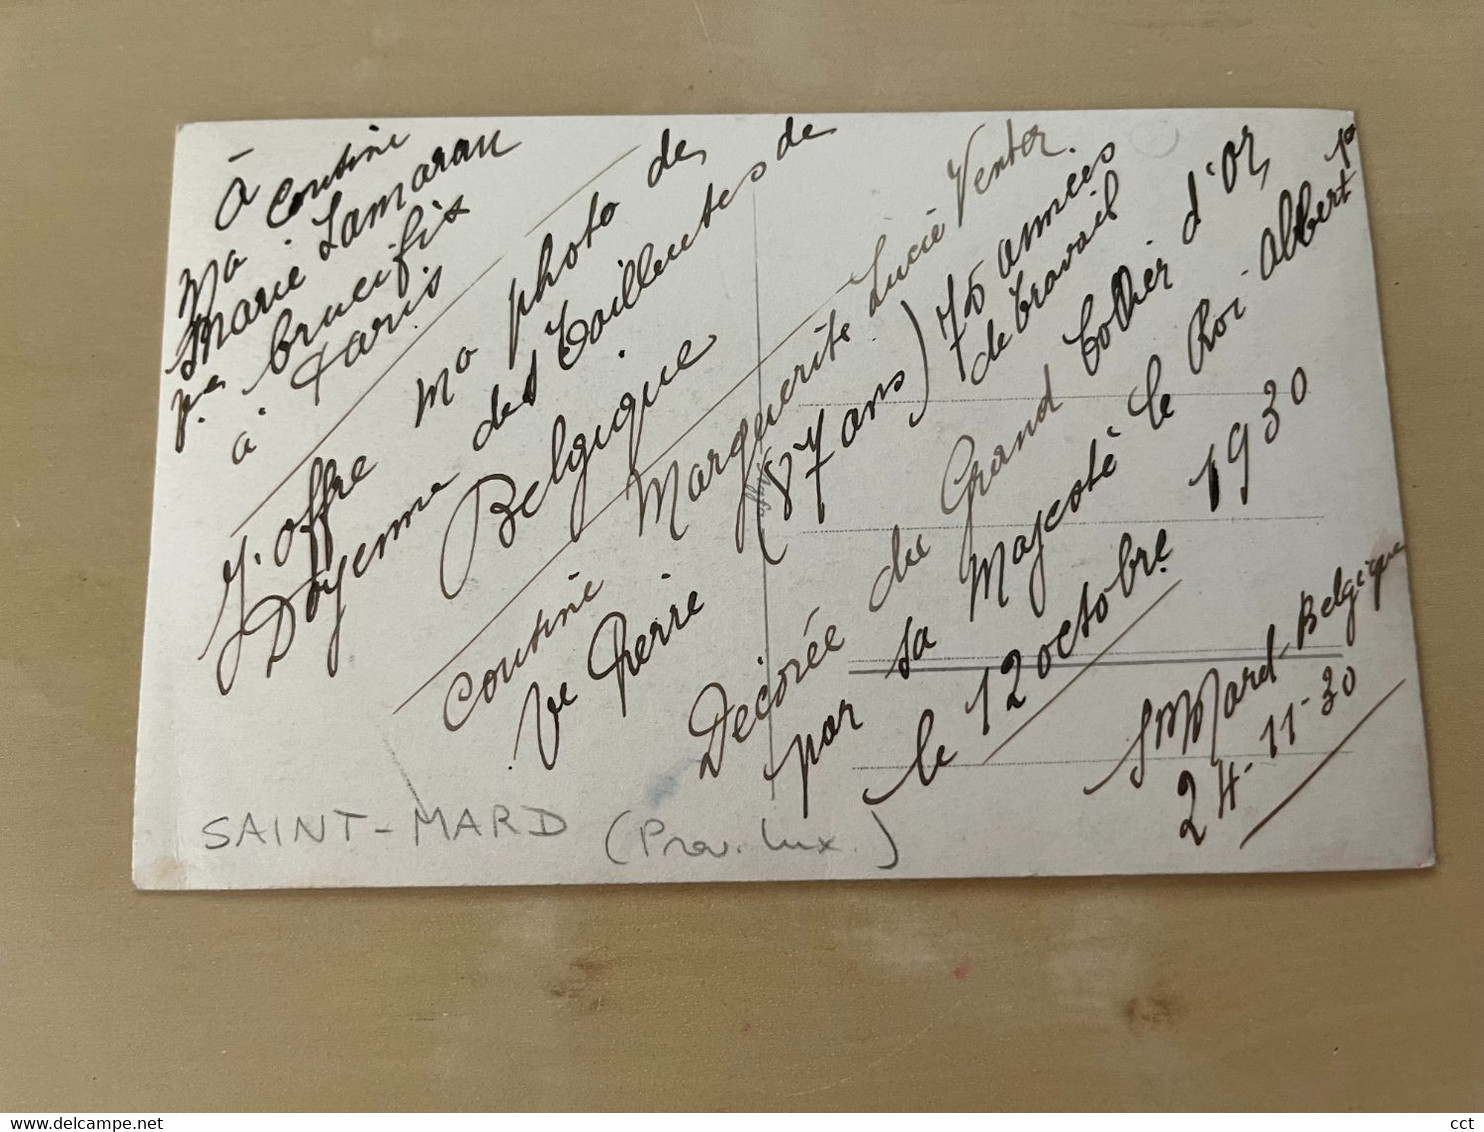 À
ma cousine
Marie Lamarau
à Paris
J'offre ma photo de
Doyenne des Tailleuses de
Belgique
cousine Marguerite Lucie Venter.
Ve Pierre (87 ans) 75 années
de travail
Décorée du Grand Collier d'Or,
par sa Majesté le Roi Albert 1er
le 12 octobre 1930
St Mard-Belgique
24-11-30
SAINT-MARD (Prov. Lux.)
www.delcampe.net
cct